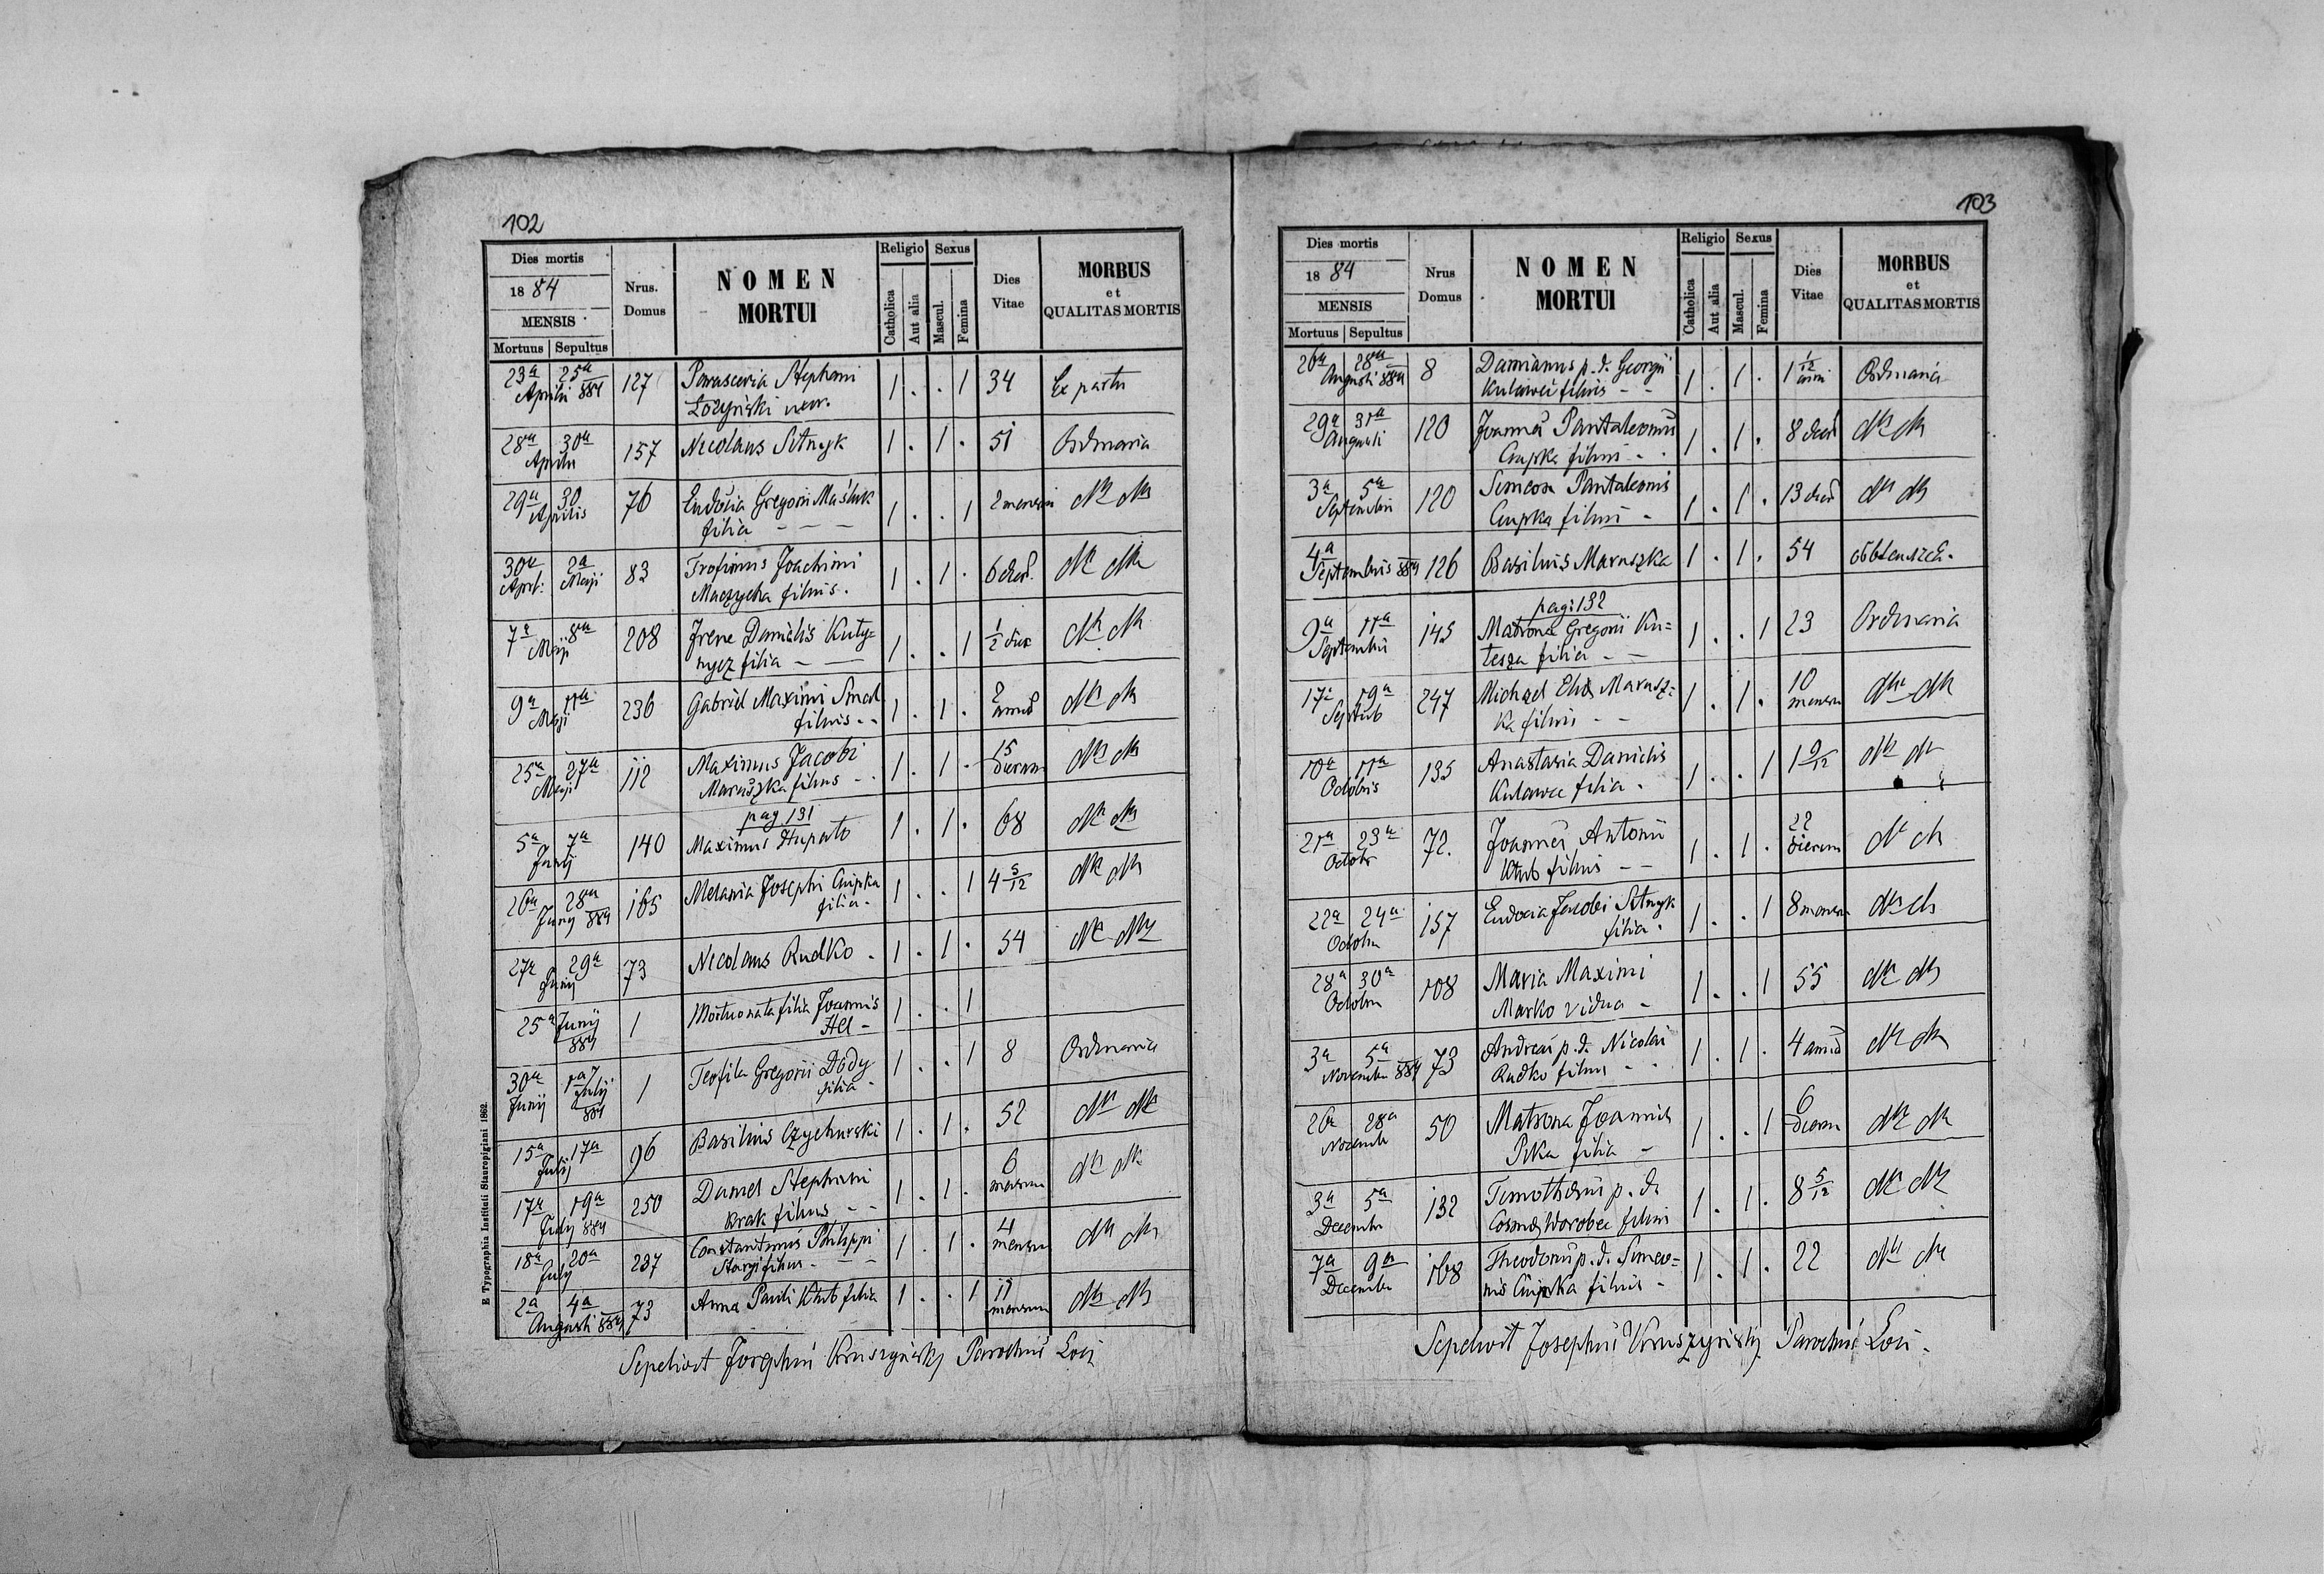 102
Dies mortis
1884
MENSIS
Mortuus Sepultus
Nrus. Domus
NOMEN MORTUI
Religio
Catholica Aut alia
Sexus
Mascul. Femina
Dies Vitae
MORBUS et QUALITAS MORTIS
23a 25a Aprili 884 127 Parascevia Stephani 1 . . 1 34 Ex partu
Łozyński uxor.
28a 30a Aprilis 157 Nicolaus Sitnyk 1 . 1 . 51 Ordinaria
29a 30 Aprilis 76 Eudocia Gregorii Maśluk 1 . . 1 2 mensium dtto dtto
filia - - -
30a Apri: 2a Maji 83 Trofimus Joachimi 1 . 1 . 6 dier. dtto dtto
Maczycha filius.
7a 8a Maji 208 Irene Danielis Kuty= 1 . . 1 1/2 diei dtto dtto
nycz filia - -
9a 11a Maji 236 Gabriel Maximi 1 . 1 . 2 dtto dtto
filius - -
25a 27a Maji 112 Maximus Jacobi 1 . 1 . 15 dierum dtto dtto
Maruszka filius - -
pag. 131
5a 7a Junij 140 Maximus Hupało 1 . 1 . 68 dtto dtto
26a 28a Junij 884 165 Melania Josephi Cupka 1 . . 1 4 5/12 dtto dtto
filia.
27a 29a Junij 73 Nicolaus Rudko . 1 . 1 . 54 dtto dtto
25a Junij 884 1 Mortuonata filia Joannis 1 . . 1
Hel -
30a Junij 1a Julij 884 1 Teofila Gregorii Dody 1 . . 1 8 Ordinaria
filia -
15a 17a Julij 96 Basilius Czychurski 1 . 1 . 52 dtto dtto
17a 19a July 884 250 Daniel Stephani 1 . 1 . 6 mensium dtto dtto
Krak filius - -
18a 20a July 237 Constantinus Philippi 1 . 1 . 4 mensium dtto dtto
filius - -
2a 4a Augusti 884 73 Anna Pauli filia 1 . . 1 11 mensium dtto dtto
Sepelivit Josephus Kruszyński Parochus Loci
E Typographia Instituti Stauropigiani 1862.
103
Dies mortis
1884
MENSIS
Mortuus Sepultus
Nrus Domus
NOMEN MORTUI
Religio
Catholica Aut alia
Sexus
Mascul. Femina
Dies Vitae
MORBUS et QUALITAS MORTIS
26a 28a Augusti 884 8 Damianus p.d. Georgii 1 . 1 . 1 1/12 anni Ordinaria
Kulawec filius - -
29a 31a Augusti 120 Joannes Pantaleonis 1 . 1 . 8 dier dtto dtto
Cupka filius - .
3a 5a Septembris 120 Simeon Pantaleonis 1 . 1 . 13 dier dtto dtto
Cupka filius -
4a Septembris 884 126 Basilius Maruszka 1 . 1 . 54
pag: 132
9a 11a Septembris 145 Matrona Gregorii Ku= 1 . . 1 23 Ordinaria
tesza filia - -
17a 19a Septub 247 Michael Eliae Marusz= 1 . 1 . 10 mensium dtto dtto
ka filius - -
10a 11a Octobris 135 Anastasia Danielis 1 . . 1 1 9/12 dtto dtto
Kulawec filia .
21a 23a Octobr 72. Joannes Antonii 1 . 1 . 22 dierum dtto dtto
filius - -
22a 24a Octobris 157 Eudocia Jacobi Sitnyk 1 . . 1 8 mensium dtto dtto
filia .
28a 30a Octobris 108 Maria Maximi 1 . . 1 55 dtto dtto
Marko vidua -
3a 5a Novembr 884 73 Andreas p.d. Nicolai 1 . 1 . 4 annor dtto dtto
Rudko filius - -
26a 28a Novembr 50 Matrona Joannis 1 . . 1 6 dierum dtto dtto
Pika filia -
3a 5a Decembr 132 Timotheus p.d. 1 . 1 . 8 5/12 dtto dtto
Cosmae Worobec filius
7a 9a Decembris 168 Theodorus p.d. Simeo= 1 . 1 . 22 dtto dtto
nis Cupka filius -
Sepelivit Josephus Kruszyński Parochus Loci.